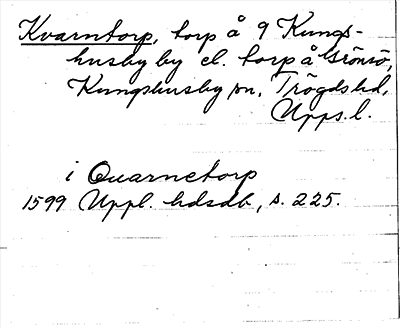 Kvarntorp, torp å 9 Kungs-
husby by el. torp å Grönsö,
Kungshusby sn, Trögds hd,
Upps. l.
i Quarnetorp
1599 Uppl. hdsdb, s. 225.